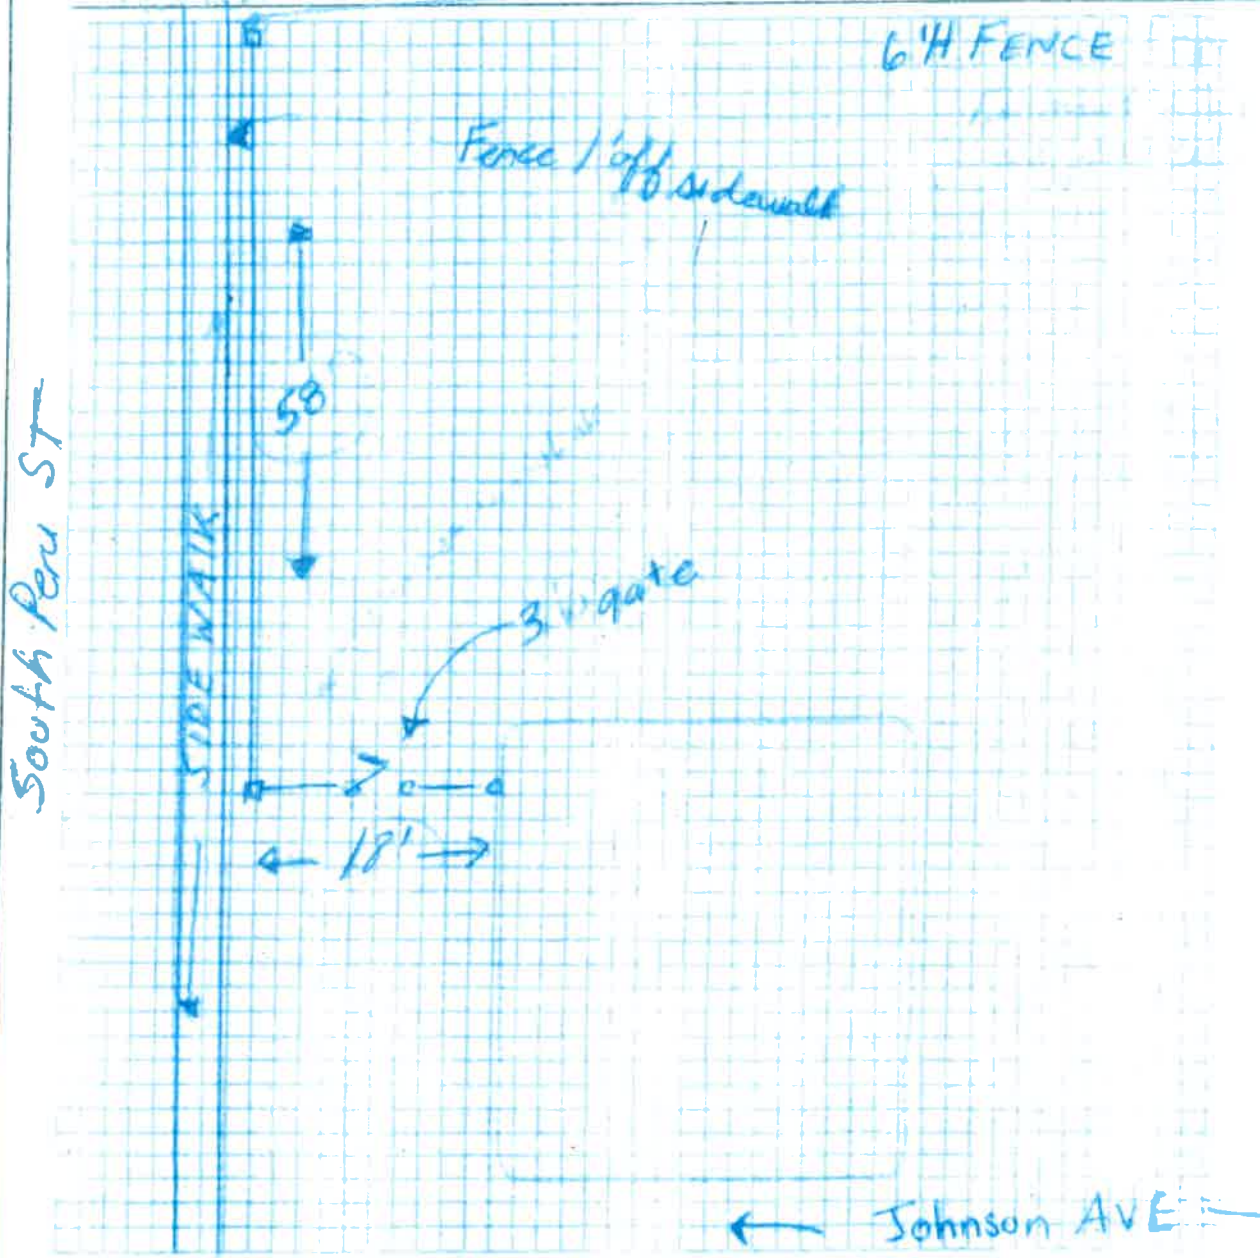 6'H FENCE
Fence 1' off sidewalk
58
South Peru ST
SIDEWALK
gate
18'
Johnson AVE